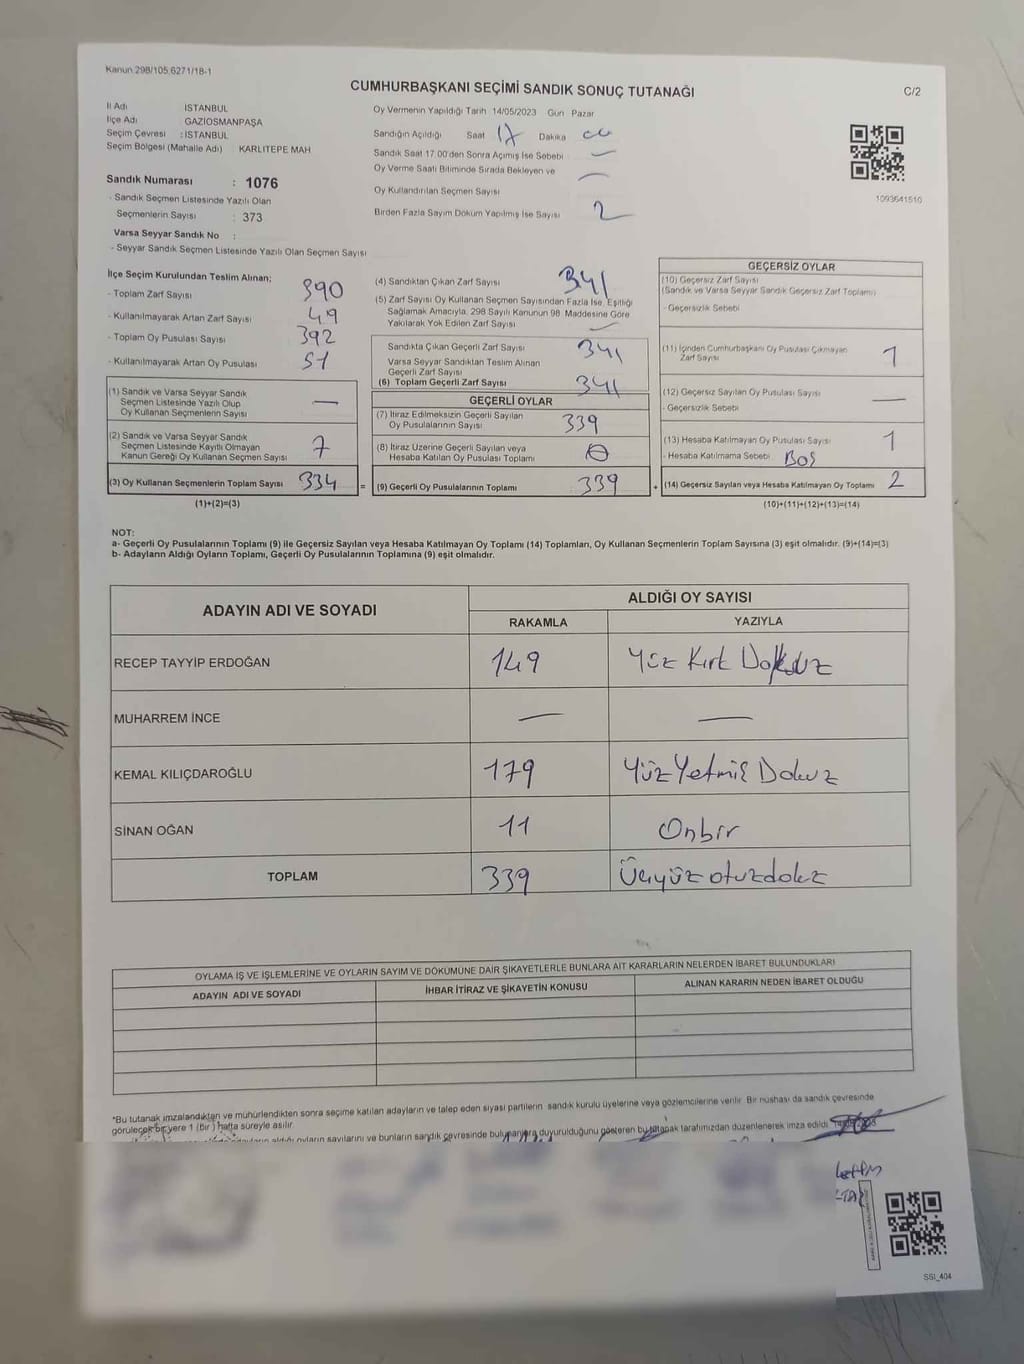 Kanun 298/105.6271/18-1
CUMHURBAŞKANI SEÇİMİ SANDIK SONUÇ TUTANAĞI
C/2
İl Adı İSTANBUL
İlçe Adı GAZİOSMANPAŞA
Seçim Çevresi : İSTANBUL
Seçim Bölgesi (Mahalle Adı) KARLITEPE MAH
Sandık Numarası : 1076
- Sandık Seçmen Listesinde Yazılı Olan
Seçmenlerin Sayısı : 373
Varsa Seyyar Sandık No :
- Seyyar Sandık Seçmen Listesinde Yazılı Olan Seçmen Sayısı
Oy Vermenin Yapıldığı Tarih 14/05/2023 Gün Pazar
Sandığın Açıldığı Saat 17 Dakika 00
Sandık Saat 17.00'den Sonra Açılmış İse Sebebi —
Oy Verme Saati Bitiminde Sırada Bekleyen ve
Oy Kullandırılan Seçmen Sayısı —
Birden Fazla Sayım Döküm Yapılmış İse Sayısı 2
1093641510
İlçe Seçim Kurulundan Teslim Alınan;
- Toplam Zarf Sayısı 390
- Kullanılmayarak Artan Zarf Sayısı 49
- Toplam Oy Pusulası Sayısı 392
- Kullanılmayarak Artan Oy Pusulası 51
(1) Sandık ve Varsa Seyyar Sandık
Seçmen Listesinde Yazılı Olup
Oy Kullanan Seçmenlerin Sayısı —
(2) Sandık ve Varsa Seyyar Sandık
Seçmen Listesinde Kayıtlı Olmayan
Kanun Gereği Oy Kullanan Seçmen Sayısı 7
(3) Oy Kullanan Seçmenlerin Toplam Sayısı 334 =
(1)+(2)=(3)
(4) Sandıktan Çıkan Zarf Sayısı 341
(5) Zarf Sayısı Oy Kullanan Seçmen Sayısından Fazla İse, Eşitliği
Sağlamak Amacıyla, 298 Sayılı Kanunun 98. Maddesine Göre
Yakılarak Yok Edilen Zarf Sayısı —
Sandıkta Çıkan Geçerli Zarf Sayısı 341
Varsa Seyyar Sandıktan Teslim Alınan
Geçerli Zarf Sayısı
(6) Toplam Geçerli Zarf Sayısı 341
GEÇERLİ OYLAR
(7) İtiraz Edilmeksizin Geçerli Sayılan
Oy Pusulalarının Sayısı 339
(8) İtiraz Üzerine Geçerli Sayılan veya
Hesaba Katılan Oy Pusulası Toplamı 0
(9) Geçerli Oy Pusulalarının Toplamı 339 +
GEÇERSİZ OYLAR
(10) Geçersiz Zarf Sayısı
(Sandık ve Varsa Seyyar Sandık Geçersiz Zarf Toplamı)
- Geçersizlik Sebebi
(11) İçinden Cumhurbaşkanı Oy Pusulası Çıkmayan
Zarf Sayısı 1
(12) Geçersiz Sayılan Oy Pusulası Sayısı —
- Geçersizlik Sebebi
(13) Hesaba Katılmayan Oy Pusulası Sayısı 1
- Hesaba Katılmama Sebebi BOŞ
(14) Geçersiz Sayılan veya Hesaba Katılmayan Oy Toplamı 2
(10)+(11)+(12)+(13)=(14)
NOT:
a- Geçerli Oy Pusulalarının Toplamı (9) ile Geçersiz Sayılan veya Hesaba Katılmayan Oy Toplamı (14) Toplamları, Oy Kullanan Seçmenlerin Toplam Sayısına (3) eşit olmalıdır. (9)+(14)=(3)
b- Adayların Aldığı Oyların Toplamı, Geçerli Oy Pusulalarının Toplamına (9) eşit olmalıdır.
ADAYIN ADI VE SOYADI
ALDIĞI OY SAYISI
RAKAMLA YAZIYLA
RECEP TAYYİP ERDOĞAN 149 Yüz Kırk Dokuz
MUHARREM İNCE — —
KEMAL KILIÇDAROĞLU 179 Yüz Yetmiş Dokuz
SİNAN OĞAN 11 Onbir
TOPLAM 339 Üçyüz otuzdokuz
OYLAMA İŞ VE İŞLEMLERİNE VE OYLARIN SAYIM VE DÖKÜMÜNE DAİR ŞİKAYETLERLE BUNLARA AİT KARARLARIN NELERDEN İBARET BULUNDUKLARI
ADAYIN ADI VE SOYADI İHBAR İTİRAZ VE ŞİKAYETİN KONUSU ALINAN KARARIN NEDEN İBARET OLDUĞU
*Bu tutanak imzalandıktan ve mühürlendikten sonra seçime katılan adayların ve talep eden siyasi partilerin sandık kurulu üyelerine veya gözlemcilerine verilir. Bir nüshası da sandık çevresinde
görülecek bir yere 1 (bir) hafta süreyle asılır.
aldığı oyların sayılarını ve bunların sandık çevresinde bulunanlara duyurulduğunu gösteren bu tutanak tarafımızdan düzenlenerek imza edildi.
SSI_404